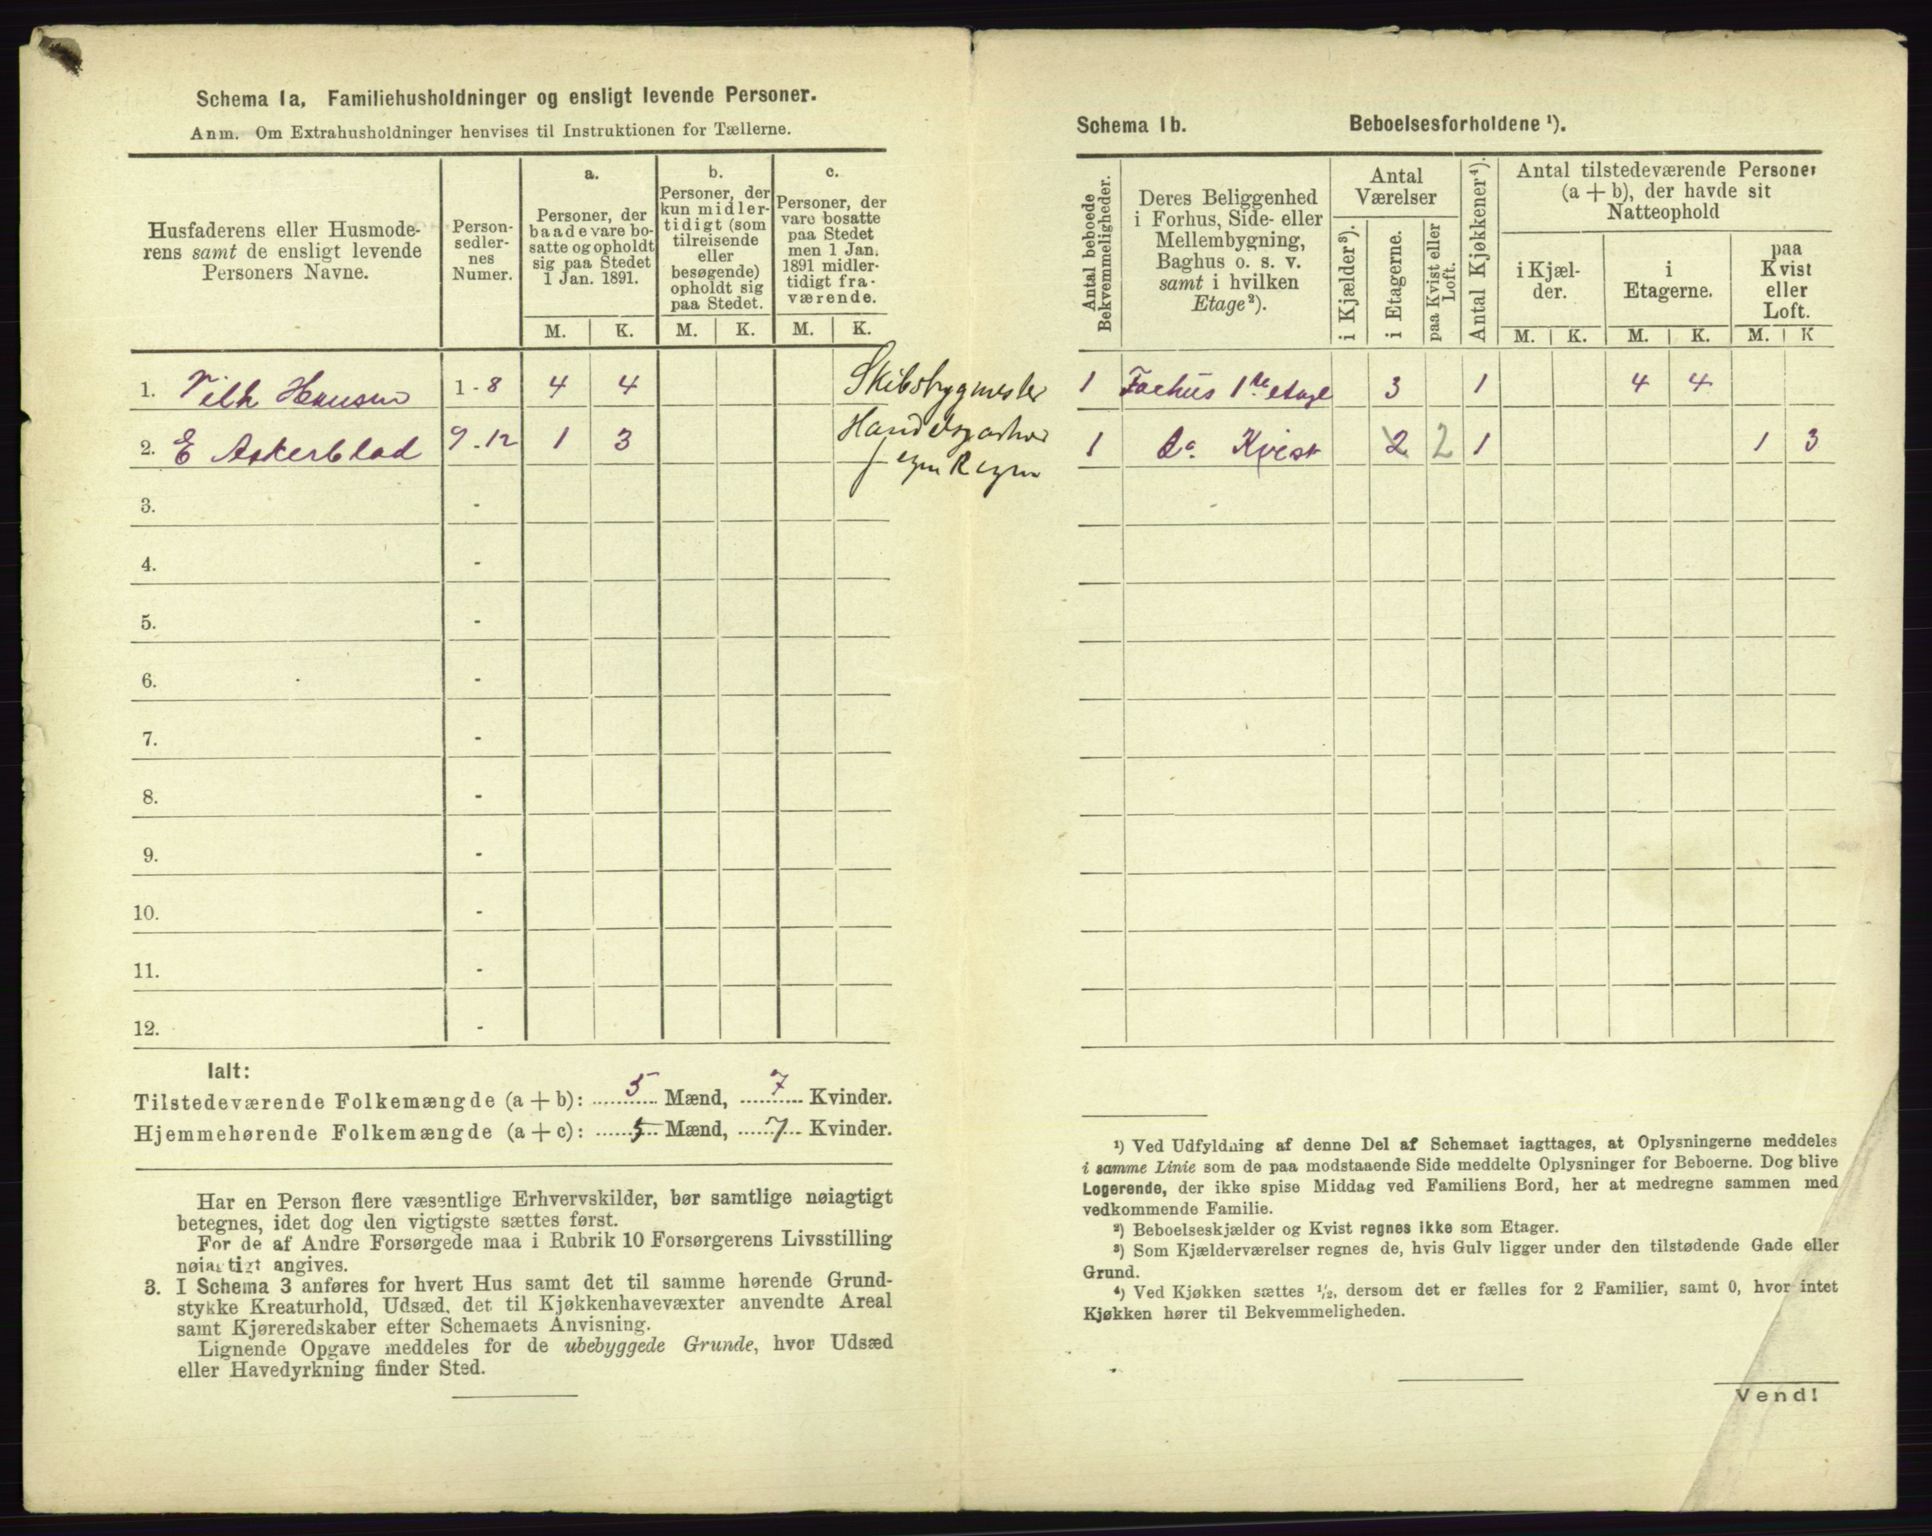 Schema 1a, Familiehusholdninger og ensligt levende Personer.
Anm. Om Extrahusholdninger henvises til Instruktionen for Tællerne.
Husfaderens eller Husmode-
rens samt de ensligt levende
Personers Navne.
Person-
sedler-
nes
Numer.
a.
Personer, der
baade vare bo-
satte og opholdt
sig paa Stedet
1 Jan. 1891.
b.
Personer, der
kun midler-
tidigt (som
tilreisende
eller
besøgende)
opholdt sig
paa Stedet.
c.
Personer, der
vare bosatte
paa Stedet
men 1 Jan.
1891 midler-
tidigt fra-
værende.
M. K. M. K. M. K.
1. Vilh Hansen 1-8 4 4 Skibsbygmester
2. E Askerblad 9-12 1 3
egen Regn
3. -
4. -
5. -
6. -
7. -
8. -
9. -
10. -
11. -
12. -
Ialt:
Tilstedeværende Folkemængde (a + b): 5 Mænd, 7 Kvinder.
Hjemmehørende Folkemængde (a + c): 5 Mænd, 7 Kvinder.
Har en Person flere væsentlige Erhvervskilder, bør samtlige nøiagtigt
betegnes, idet dog den vigtigste sættes først.
For de af Andre Forsørgede maa i Rubrik 10 Forsørgerens Livsstilling
nøiagtigt angives.
3. I Schema 3 anføres for hvert Hus samt det til samme hørende Grund-
stykke Kreaturhold, Udsæd, det til Kjøkkenhavevæxter anvendte Areal
samt Kjøreredskaber efter Schemaets Anvisning.
Lignende Opgave meddeles for de ubebyggede Grunde, hvor Udsæd
eller Havedyrkning finder Sted.
Schema 1b. Beboelsesforholdene ¹).
Antal beboede
Bekvemmeligheder.
Deres Beliggenhed
i Forhus, Side- eller
Mellembygning,
Baghus o. s. v.
samt i hvilken
Etage²).
Antal
Værelser
i Kjælder³).
i Etagerne.
paa Kvist eller
Loft.
Antal Kjøkkener⁴).
Antal tilstedeværende Personer
(a + b), der havde sit
Natteophold
i Kjæl-
der.
i
Etagerne.
paa
Kvist
eller
Loft.
M. K. M. K. M. K
1 Forhus 1ste etage 3 1 4 4
1 do. Kvist 2 2 1 1 3
¹) Ved Udfyldning af denne Del af Schemaet iagttages, at Oplysningerne meddeles
i samme Linie som de paa modstaaende Side meddelte Oplysninger for Beboerne. Dog blive
Logerende, der ikke spise Middag ved Familiens Bord, her at medregne sammen med
vedkommende Familie.
²) Beboelseskjælder og Kvist regnes ikke som Etager.
³) Som Kjælderværelser regnes de, hvis Gulv ligger under den tilstødende Gade eller
Grund.
⁴) Ved Kjøkken sættes ½, dersom det er fælles for 2 Familier, samt 0, hvor intet
Kjøkken hører til Bekvemmeligheden.
Vend!